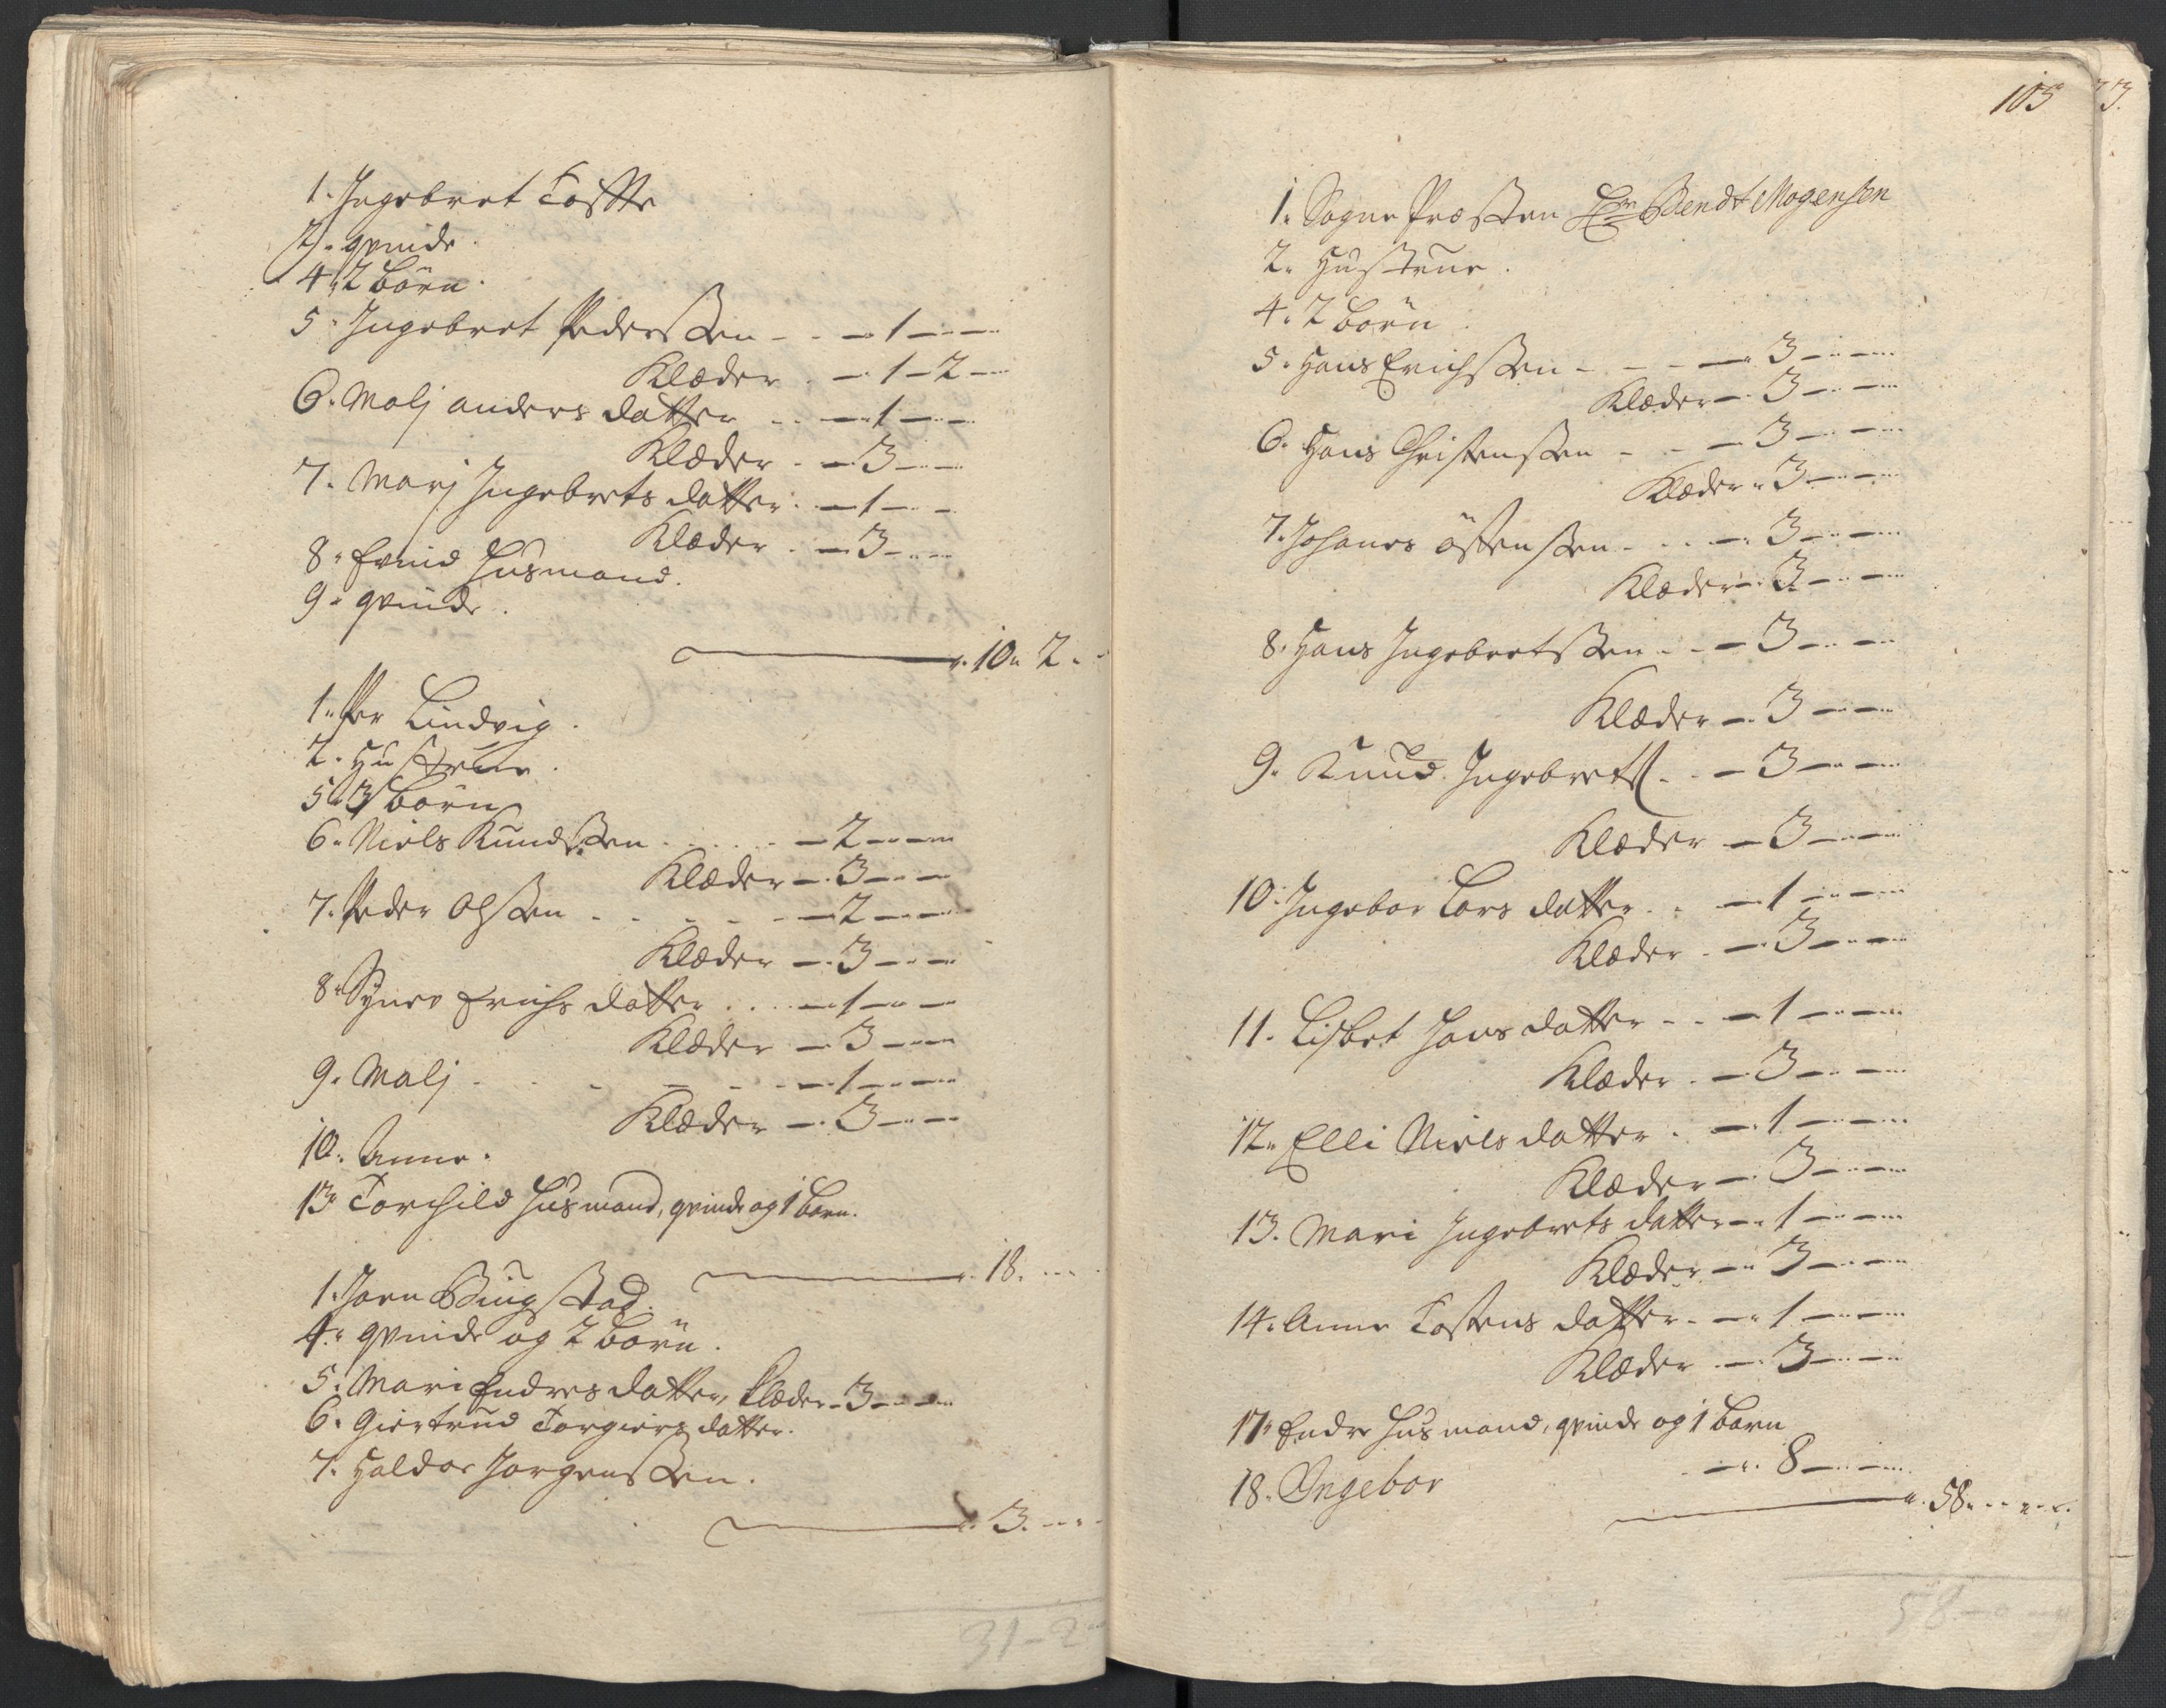 1. Ingebret Tofte
2. qvinde.
4. 2 börn.
5. Ingebret Pederssen - - - 1 - - -
Klæder - 1 - 2 -
6. Malj anders datter - - - 1 - - -
Klæder - - 3 - - -
7. Marj Ingebrets datter. - 1 - - -
Klæder - - 3 - - -
8. Evind Husmand.
9. qvinde.
10. 2.
1. Per Lindvig.
2. Hustrue.
5. 3 börn
6. Niels Knudssen - - - 2 - - -
Klæder - 3 - - -
7. Peder Olssen - - - 2 - - -
Klæder - 3 - - -
8. Synev Erichs datter - - 1 - - -
Klæder - 3 - - -
9. Malj - - - 1 - - -
Klæder - 3 - - -
10. Anne.
13. Torchild Husmand, qvinde og 1 barn.
18. - - -
1. Jorn Bingstad.
4. qvinde og 2 börn.
5. Mari Endres datter, Klæder - 3 - - -
6. Giertrud Torgiers datter.
7. Haldor Jørgenssen.
3. - - -
31 - 2 -
105
73.
1. Sogne Præsten Hr. Bendt Mogensen
2. Hustrue.
4. 2 börn.
5. Hans Erichssen - - - 3 - - -
Klæder - 3 - - -
6. Hans Christenssen - - - 3 - - -
Klæder - 3 - - -
7. Johanes östenssen - - - 3 - - -
Klæder - 3 - - -
8. Hans Ingebretssen - - - 3 - - -
Klæder - 3 - - -
9. Knud Ingebretss. - - 3 - - -
Klæder - 3 - - -
10. Ingebor Lars datter - - 1 - - -
Klæder - 3 - - -
11. Lisbet Hans datter - - 1 - - -
Klæder - 3 - - -
12. Elli Niels datter - - 1 - - -
Klæder - 3 - - -
13. Mari Ingebrets datter - 1 - - -
Klæder - 3 - - -
14. Anne Tostens datter - - 1 - - -
Klæder - 3 - - -
17. Endre Husmand, qvinde og 1 barn
- 8 - - -
18. Ingebor
58. - - -
58 - - -